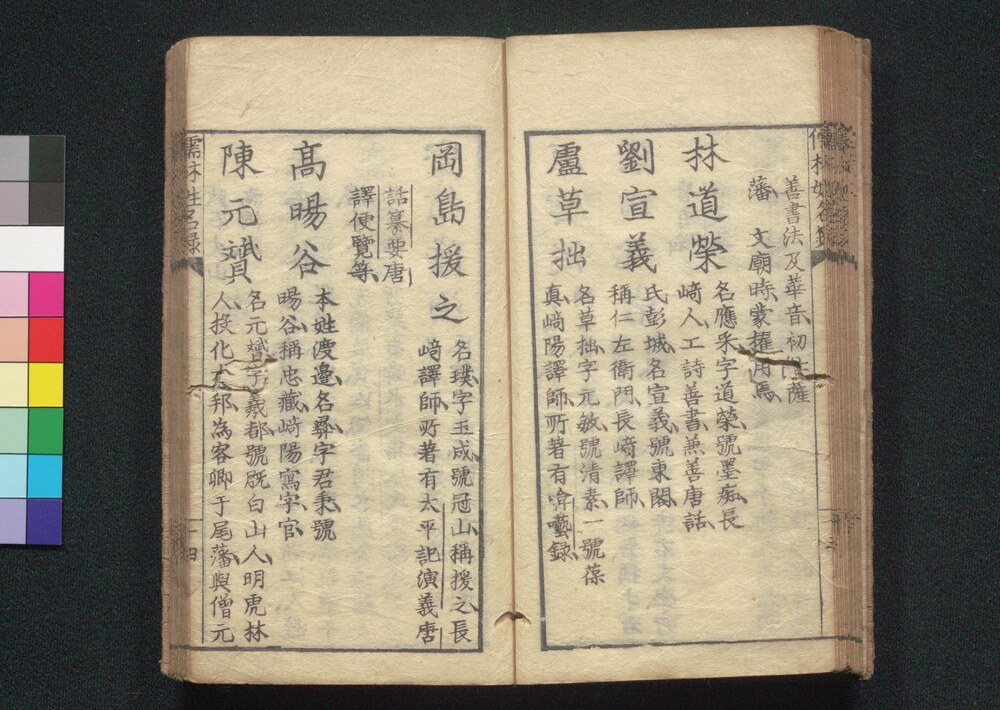 善書法及華音初住薩
藩 文廟時蒙擢用焉
林道榮
名應寀字道榮號墨痴長
﨑人工詩善書兼善唐話
劉宣義
氏彭城名宣義號東閣
稱仁左衛門長﨑譯師
盧草拙
名草拙字元敏號清素一號葆
真﨑陽譯師所著有嚌藝錄
岡島援之
名璞字玉成號冠山稱援之長
﨑譯師所著有太平記演義唐
話纂要唐
譯便覽等
髙暘谷
本姓渡邉名彝字君秉號
暘谷稱忠藏﨑陽寫字官
陳元贇
名元贇字羲都號既白山人明虎林
人投化本邦為客卿于尾藩與僧元
儒林姓名録
十四